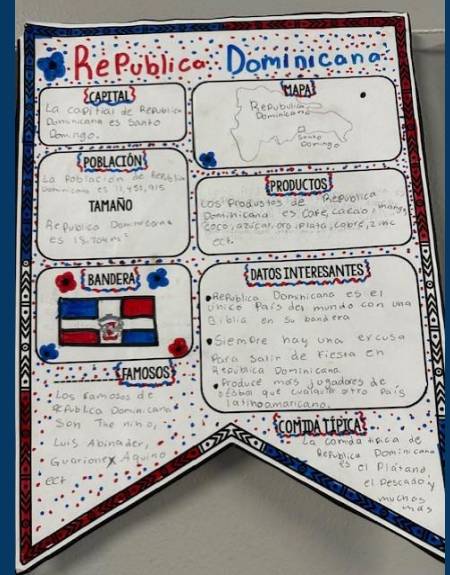 Republica Dominicana
CAPITAL
La capital de Republica
Dominicana es Santo
Domingo.
POBLACIÓN
La Poblacion de Republica
Dominicana es 11,457,915
TAMAÑO
Republica Dominicana
es 18.704 m²
BANDERA
FAMOSOS
Los famosos de
Republica Dominicana
Son The nino,
Luis Abinader,
Guarionex Aquino
ect
MAPA
Republica
Dominicana
Santo
Domingo
PRODUCTOS
Los Productos de Republica
Dominicana es Café, cacao, mango,
coco, azúcar, oro, Plata, cobre, zinc
ect.
DATOS INTERESANTES
•Republica Dominicana es el
único País del mundo con una
Biblia en su bandera
•Siempre hay una excusa
Para salir de Fiesta en
Republica Dominicana
•Produce más jugadores de
béisbol que cualquier otro País
latinoamaricano.
COMIDA TÍPICA
La comida tipica de
Republica Dominicana
es el Plátano,
el Pescado y
muchos
más